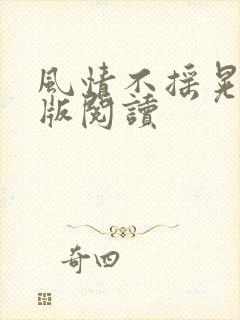 風情不搖晃
版閱讀
奇四